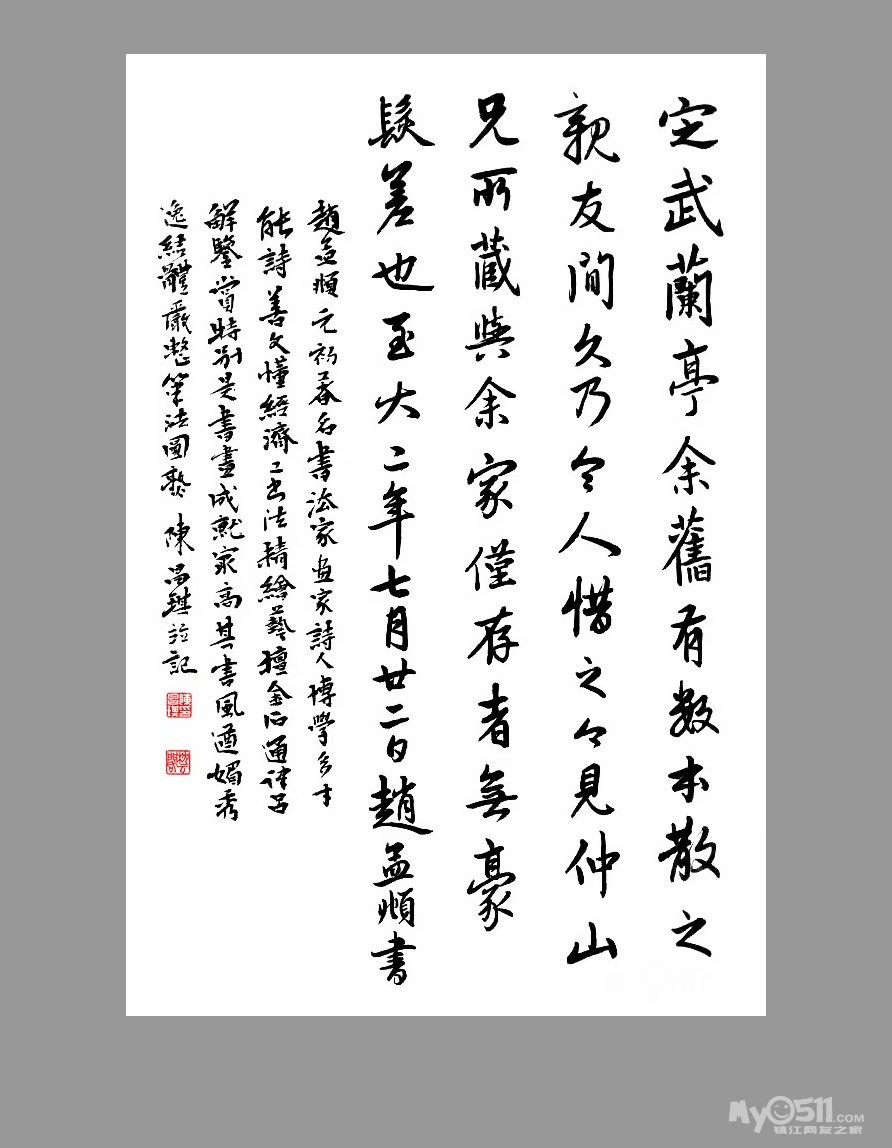 定武蘭亭余舊有數本散之
親友間久乃令人惜之今見仲山
兄所藏與余家僅存者無豪
髮差也至大二年七月廿二日趙孟頫書
趙孟頫元初著名書法家畫家詩人博學多才
能詩善文懂經濟工書法精繪藝擅金石通律呂
解鑒賞特別是書畫成就最高其書風遒媚秀
逸結體嚴整筆法圓熟 陳昌鎂 記
MyO511.COM
镇江网友之家